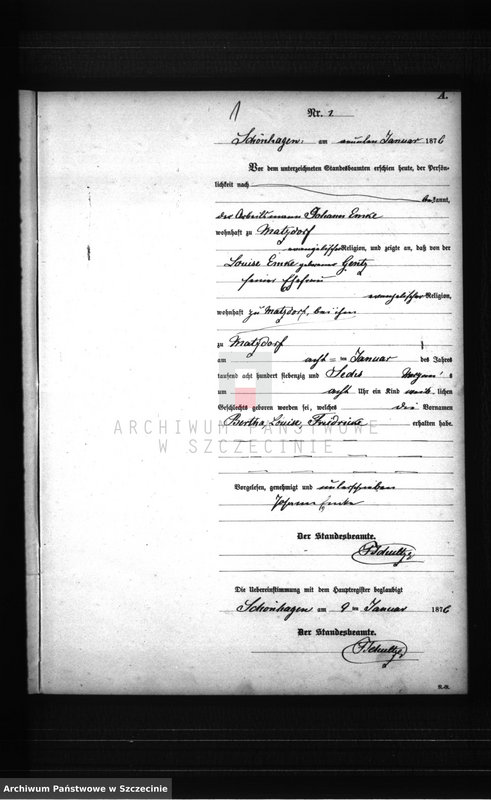 A.
1
Nr. 2
Schönhagen, am neunten Januar 1876
Vor dem unterzeichneten Standesbeamten erschien heute, der Persön-
lichkeit nach
bekannt,
der Arbeitsmann Johann Emke
wohnhaft zu Matzdorf
evangelischer Religion, und zeigte an, daß von der
Louise Emke geborenen Gentz
seiner Ehefrau
evangelischer Religion,
wohnhaft zu Matzdorf, bei ihm
zu Matzdorf
am acht ten Januar des Jahres
tausend acht hundert siebenzig und Sechs Morgens
um acht Uhr ein Kind weib lichen
Geschlechts geboren worden sei, welches die Vornamen
Bertha, Louise, Friedricke erhalten habe.
ARCHIWUM PAŃSTWOWE
W SZCZECINIE
Vorgelesen, genehmigt und unterschrieben
Johann Emke
Der Standesbeamte.
Schultz
Die Uebereinstimmung mit dem Hauptregister beglaubigt
Schönhagen am 9 ten Januar 1876
Der Standesbeamte.
Schultz
Archiwum Państwowe w Szczecinie